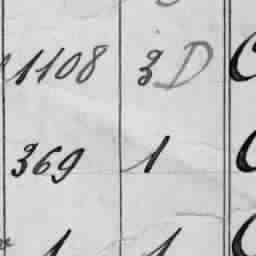 1108 3 D
369 1
1 1